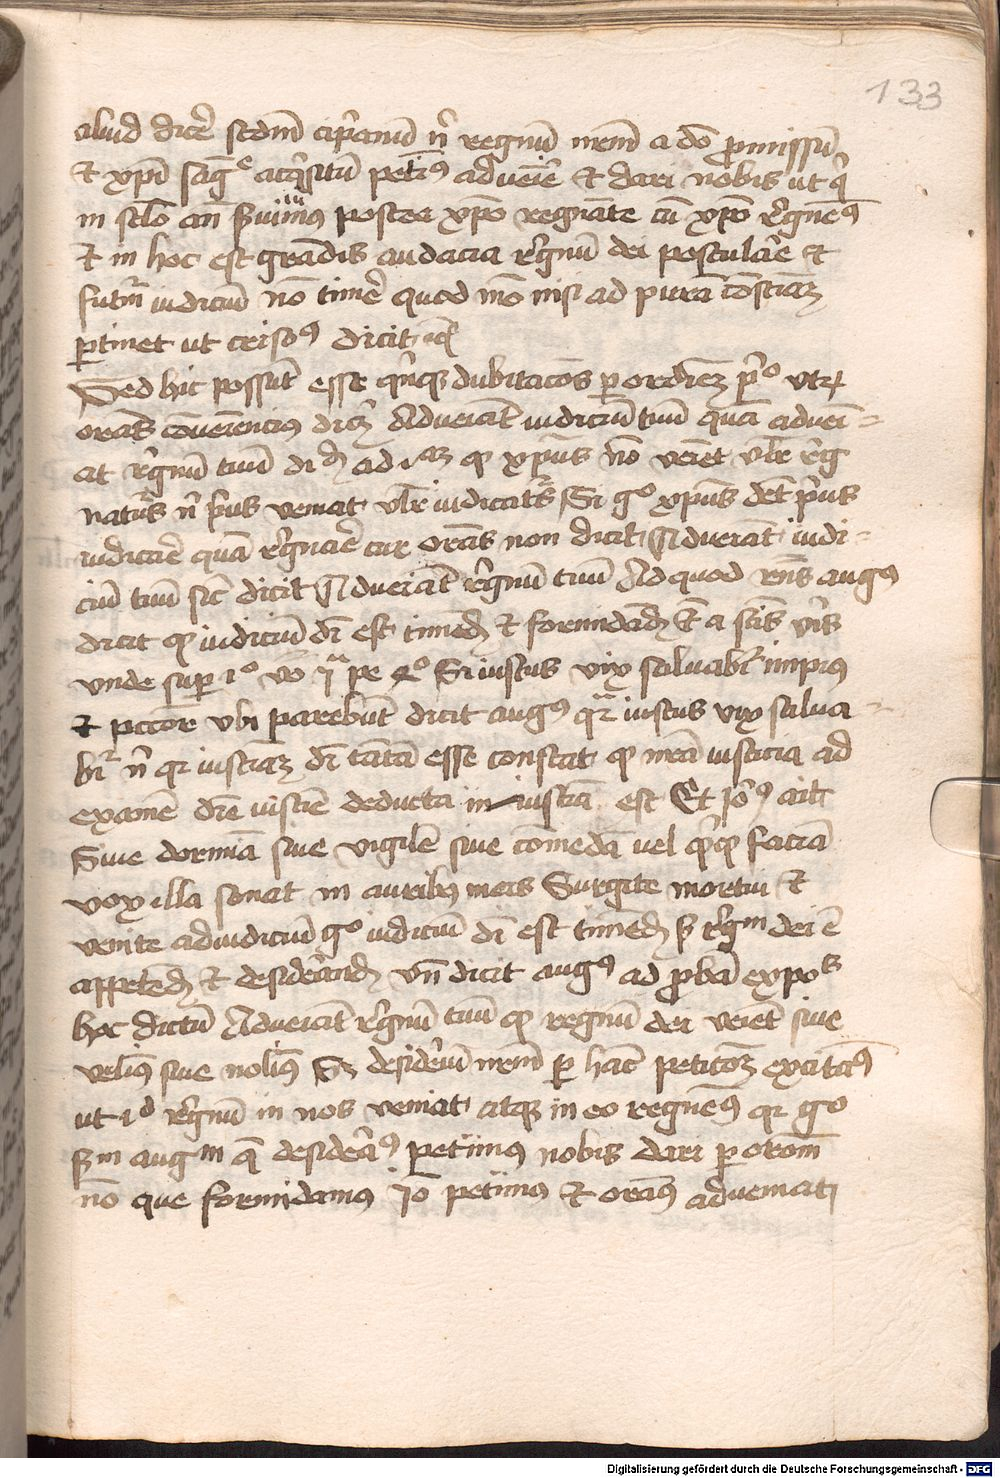 133
aliud dicere sedm ciprianum nr regnum nrm a deo promissum
et xpi sanguine acquisitum petimus advenire et dari nobis ut qui
in seculo ante servivimus postea xpo regnante cum xpo regnemus
Et in hoc est grandis audacia regnum dei postulare et
futurum iudicium non timere quod non nisi ad puram conscienciam
pertinet ut crisos dicit
Sed hic possunt esse quinque dubitaciones per ordinem primo utrum
orans conveniencius dicere Adveniat iudicium tuum quam adveni=
at regnum tuum ad xpus non veniet ulterius reg
naturus nisi prius veniat iudicaturus Si ergo xpus debet prius
iudicare quam regnare cur orans non dicit Adveniat iudi=
cium tuum sed dicit Adveniat regnum tuum Ad quod respondens augus
dicit quod iudicium dei est timendum et formidandum eciam a sanctis viris
unde super pe 4o Si iustus vix salvabitur impius
et peccator ubi parebunt dicit augus quare iustus vix salva=
bitur nisi quia iusticiam dei tantam esse constat quod nostra iusticia ad
examen divine iusticie deducta iniusticia est Et Iero ait
Sive dormiam sive vigilem sive comedam vel quidquid faciam
vox illa sonat in auribus meis Surgite mortui et
venite ad iudicium ergo iudicium dei est timendum sed regnum dei est
appetendum et desiderandum unde dicit augus ad probam expos
hoc dictum Adveniat regnum tuum quod regnum dei veniet sive
velimus sive nolimus Sed desiderium nostrum per hanc peticionem excitamus
ut id regnum in nos veniat atque in eo regnemus quia ergo
secundum augm que desideramus petimus nobis dari per oracionem
non que formidamus Ideo petimus et oramus adveniat
Digitalisierung gefördert durch die Deutsche Forschungsgemeinschaft - DFG